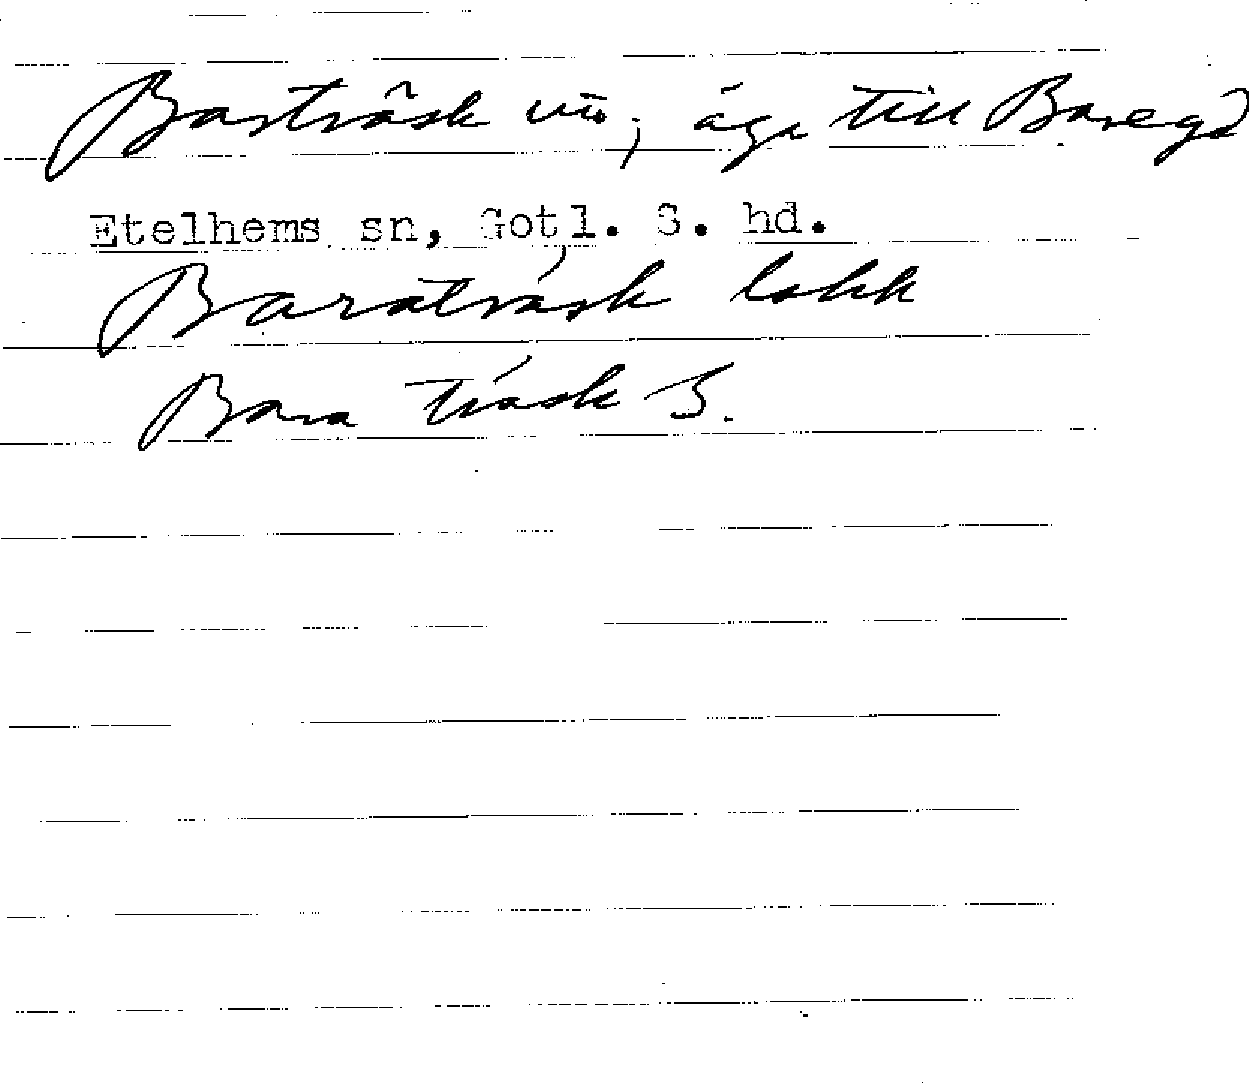 Barträsk vīn, äga till Barega
Etelhems sn, Gotl. S. hd.
Baraträsk lokk
Bara träsk S.